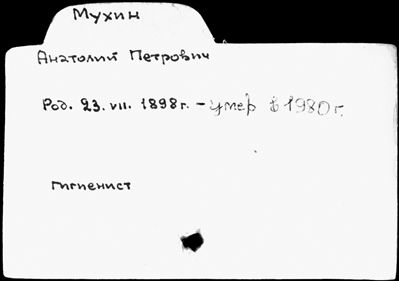 Мухин
Анатолий Петрович
Род. 23. VII. 1898г. – умер в 1980г.
гигиенист